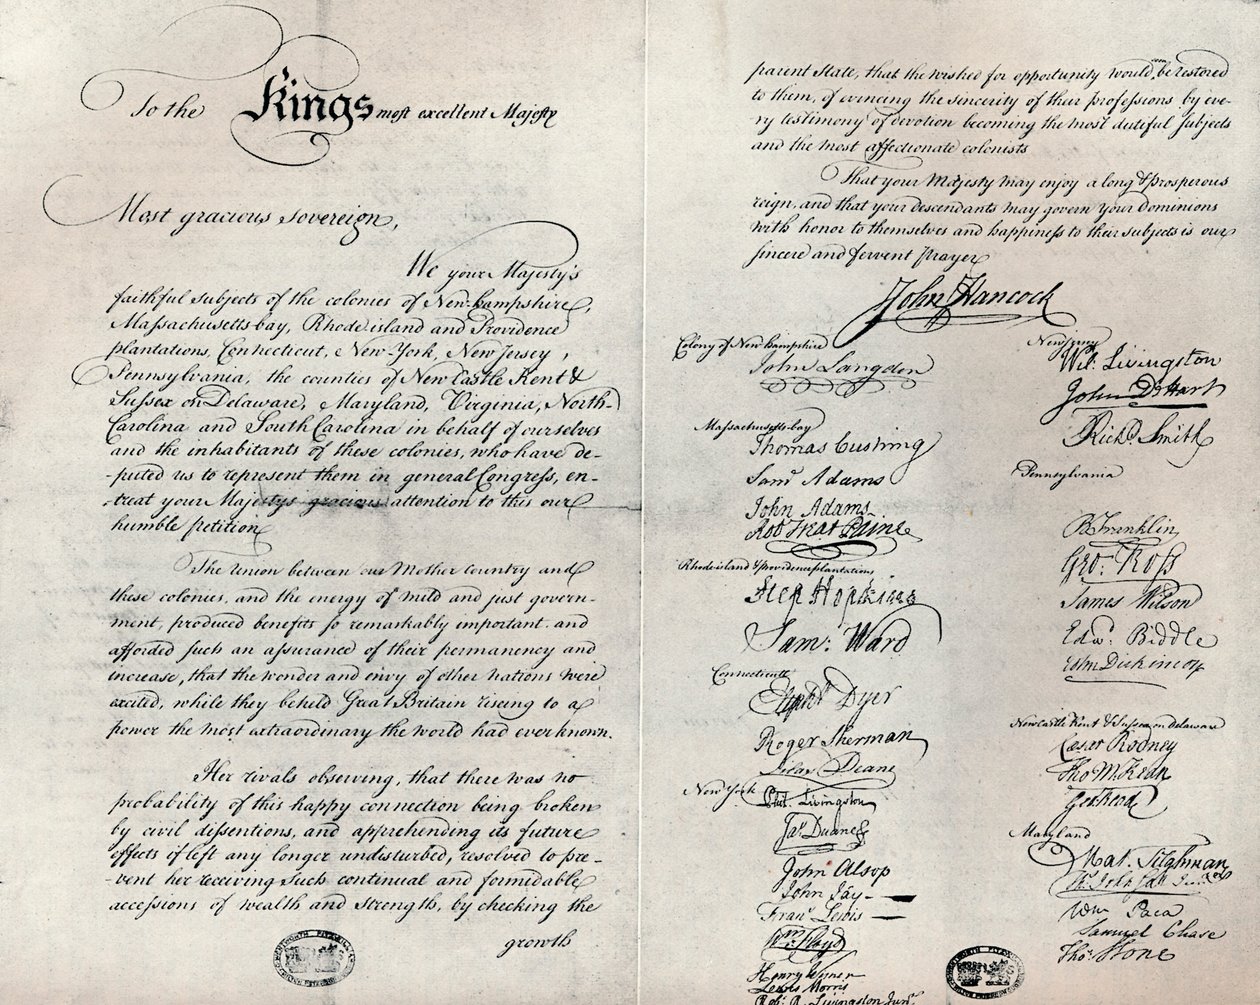 To the Kings most excellent Majesty
Most gracious sovereign,
We your Majesty's
faithful subjects of the colonies of New-hampshire,
Massachusetts-bay, Rhode island and Providence
plantations, Connecticut, New-York, New Jersey,
Pennsylvania, the counties of New Castle Kent &
Sussex on Delaware, Maryland, Virginia, North-
Carolina and South Carolina in behalf of ourselves
and the inhabitants of these colonies, who have de-
-puted us to represent them in general Congress, en-
-treat your Majestys gracious attention to this our
humble petition
The union between our Mother Country and
these colonies, and the energy of mild and just govern-
ment, produced benefits so remarkably important. and
afforded such an assurance of their permanency and
increase, that the wonder and envy of other nations were
excited, while they beheld Great Britain riseing to a
power the most extraordinary the world had ever known.
Her rivals observing, that there was no
probability of this happy connection being broken
by civil dissentions, and apprehending its future
effects if left any longer undisturbed, resolved to pre-
-vent her receiving such continual and formidable
accessions of wealth and strength, by checking the
growth
parent State, that the wished for opportunity would be restored
to them, of evincing the sincerity of their professions by eve-
ry testimony of devotion becoming the most dutiful subjects
and the most affectionate colonists
That your Majesty may enjoy a long & prosperous
reign, and that your descendants may govern your Dominions
with honor to themselves and happiness to their subjects is our
sincere and fervent prayer
John Hancock
Colony of New hampshire
John Langdon
Massachusetts-bay
Thomas Cushing
Saml Adams
John Adams
Robt Treat Paine
Rhode island & providence plantations
Step Hopkins
Sam: Ward
Connecticut
Elipht Dyer
Roger Sherman
Silas Deane
New York
Phil. Livingston
Jas Duane
John Alsop
John Jay
Frans Lewis
Wm Floyd
Henry Wisner
Lewis Morris
Robt R Livingston Junr
New Jersey
Wil: Livingston
John DeHart
Richd Smith
Pennsylvania
B Franklin
Geo: Ross
James Wilson
Edwd Biddle
John Dickinson
Newcastle Kent & Sussex on Delaware
Cæsar Rodney
Tho M:Kean
Geo Read
Maryland
Mat. Tilghman
Ths Johnson Junr
Wm Paca
Samuel Chase
Thos Stone